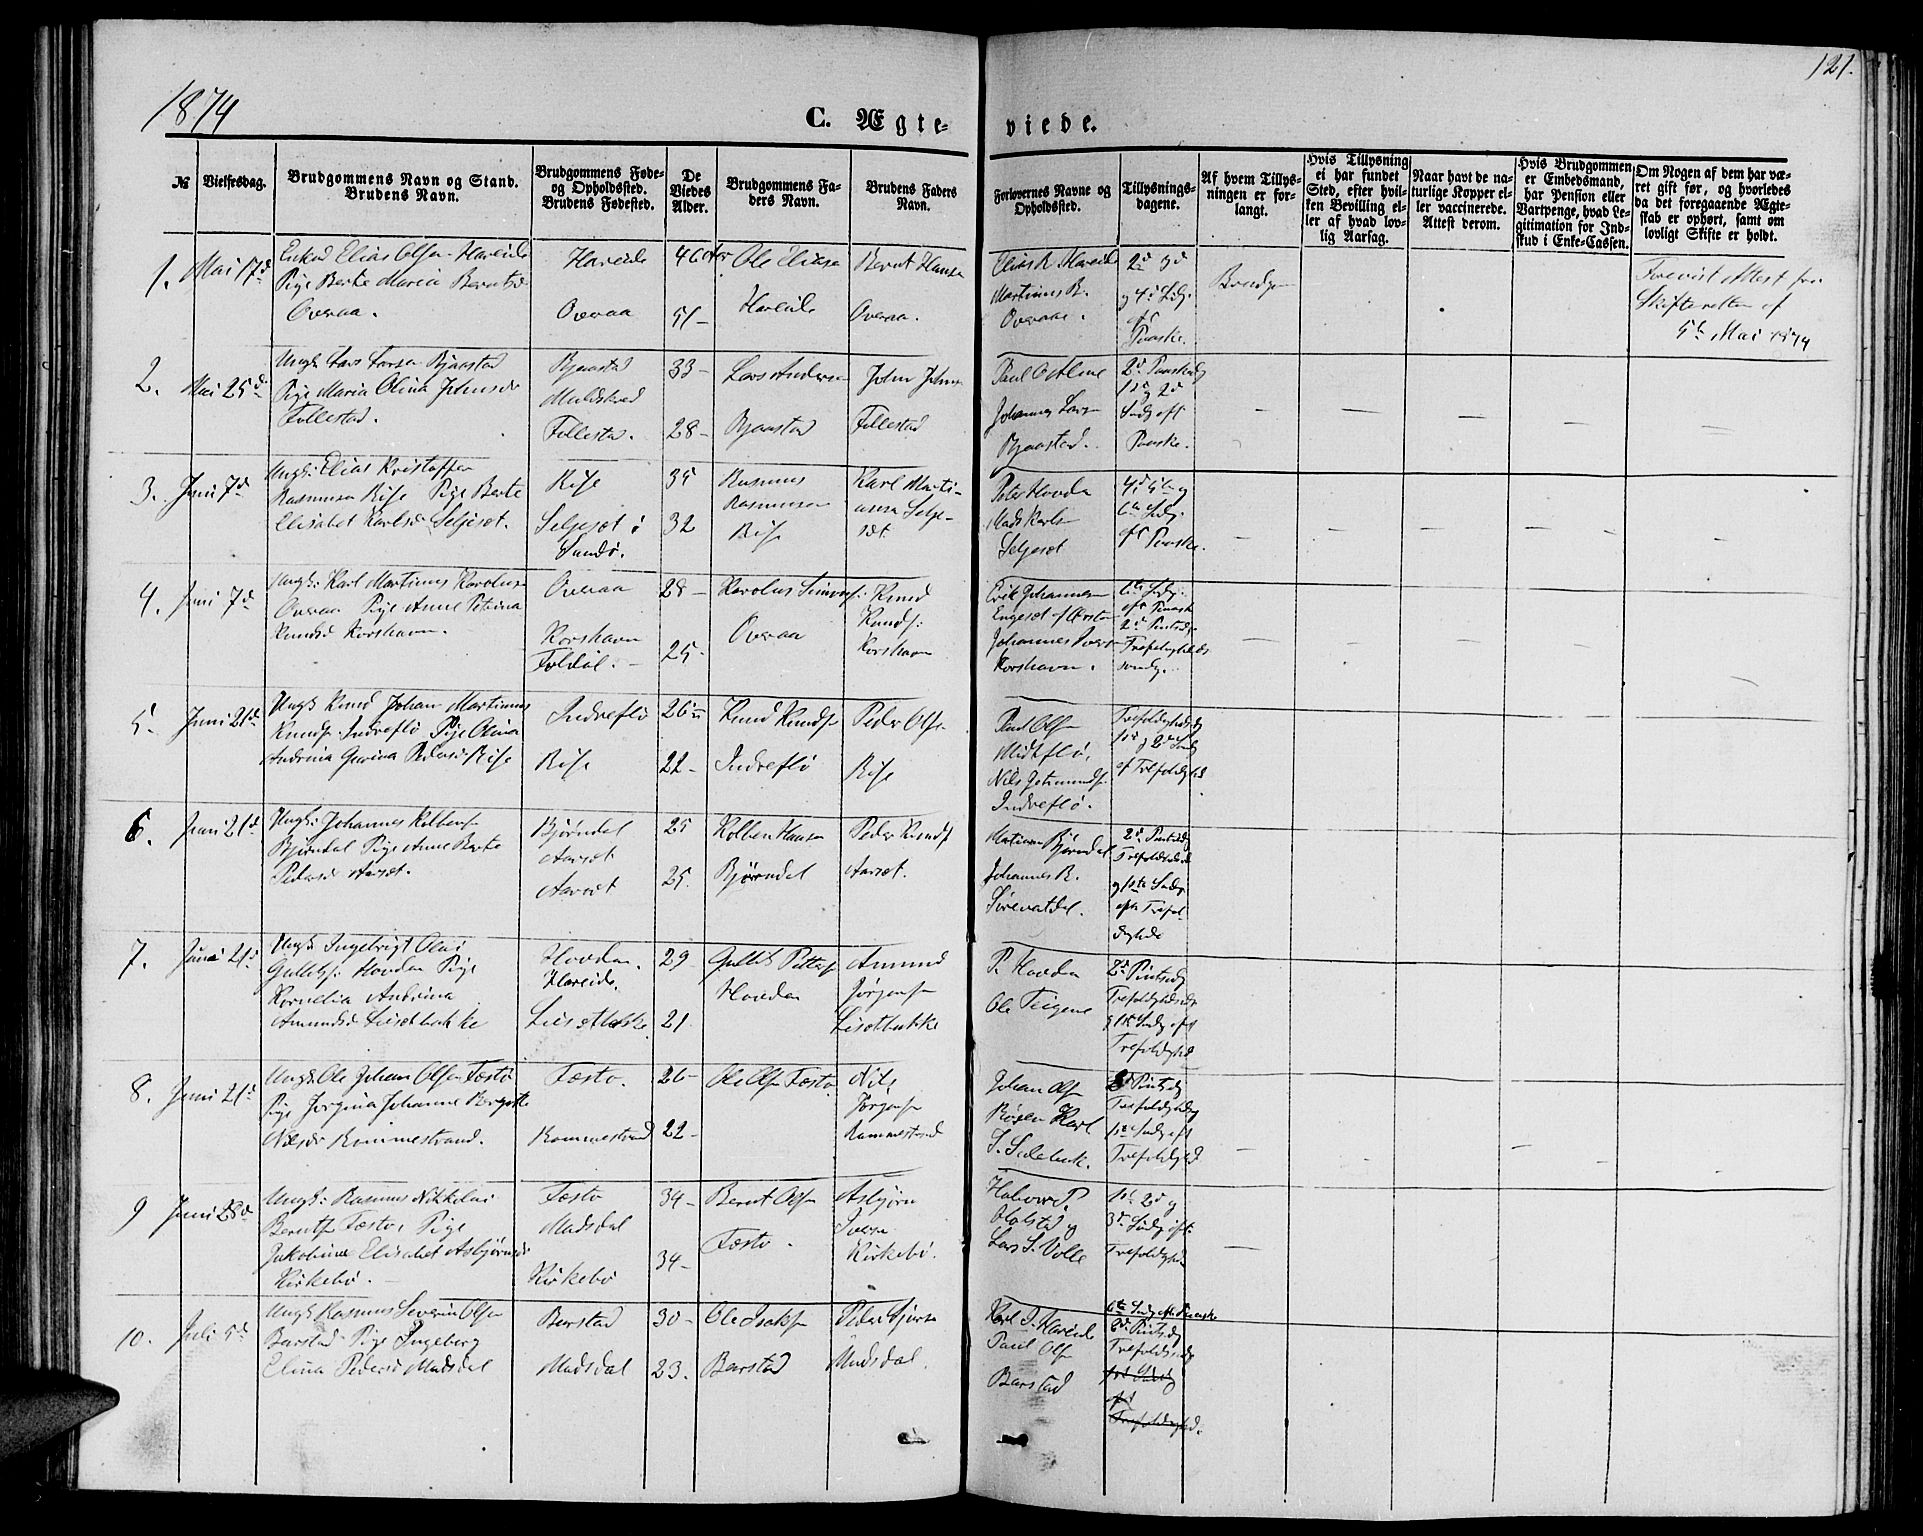 1874
C. Ægteviede.
121.
№
Vielsesdag.
Brudgommens Navn og Stand.
Brudens Navn.
Brudgommens Føde-
og Opholdssted.
Brudens Fødested.
De
Viedes
Alder.
Brudgommens Fa-
ders Navn.
Brudens Faders
Navn.
Forlovernes Navne og
Opholdssted.
Tillysnings-
dagene.
Af hvem Tillys-
ningen er for-
langt.
Hvis Tillysning
ei har fundet
Sted, efter hvil-
ken Bevilling el-
ler af hvad lov-
lig Aarsag.
Naar havt de na-
turlige Kopper el-
ler vaccinerede.
Attest derom.
Hvis Brudgommen
er Embedsmand,
har Pension eller
Vartpenge, hvad Le-
gitimation for Ind-
skud i Enke-Cassen.
Om Nogen af dem har væ-
ret gift før, og hvorledes
da det foregaaende Ægte-
skab er ophørt, samt om
lovligt Skifte er holdt.
1.
Mai 17d
Enkem Elias Olsen Hareide
Pige Berte Maria Berntsd
Overaa.
Hareide
Overaa
46
51-
Ole Eliasen
Hareide
Bernt Hansen
Overaa.
Elias R. Hareide
Martinus B.
Overaa.
2d 3d
og 4d Sdg.
eft
Paaske.
Brudg
Forevist Attest fra
Skifteretten af
5te Mai 1874
2.
Mai 25d
Ungk Lars Larsen Bjaastad
Pige Maria Olina Johnsd
Follestad.
Bjaastad
Follestad.
33-
28-
Lars Andersen
Bjaastad
John Johnsen
Follestad
Johannes Larsen
Bjaastad.
2d Paaskedg
1ste og 2d
Sndg eft
Paaske.
3.
Juni 7d
Ungk: Elias Kristoffer
Rasmussen Rise Pige Berte
Elisabet Karlsd Seljeset.
Rise
Seljeset i
Sundø.
35
32
Rasmus
Rasmussen
Rise
Karl Marti-
nusen Selje-
set
Peter Hovden
Mads Karlsen
Seljeset
4d 5te og
6te Sndg.
eft Paaske.
4.
Juni 7d
Ungk: Karl Martinus Karolusen
Overaa Pige Anne Petrina
Knudsd Korshavn.
Overaa
Korshavn
28-
25-
Karolus
Overaa
Knud
Knuds:
Korshavn
Erik Johannesen
Engeset af Ørsten
Johannes
Korshavn.
6te Sndg.
eft Paaske
2d Pintsedg
Trefoldigheds
sondg.
5.
Juni 21d
Ungk Knud Johan Martinus
Knuds. Indreflø Pige Olina
Andrina Gurina Pedersd Rise
Indreflø
Rise
26
22-
Knud Knudsen
Indreflø
Peder Olsen
Rise
Paul Olsen
Midtflø,
Nils
Indreflø.
Trefoldighedsdg
1ste og 2den Sndg
ef Trefoldighed
6.
Juni 21d
Ungk: Johannes Kolbens
Bjørndal Pige Anne Berte
Pedersd Aarset.
Bjørndal
Aarset
Aarset
25
25.
Kolben Hansen
Bjørndal
Peder Knuds
Aarset.
Bjørndal
Johannes R.
2d Pintsedg
Trefoldighedsdg
og 1ste Sndg
eftr Trefol-
dighed
7.
Juni 21d
Ungk Ingebrigt Olai
Hovden Pige
Kornelia Andrina
Amundsd Lisetbakke
Hovden.
Hareide.
Lisetbakke
29
21.
Hovden
Amund
Jørgensen
Lisetbakke
P. Hovden
Ole Teigene
2d Pintsedg
Trefoldighedsdg
og 1ste Sndg eft
Trefoldighed
8.
Juni 21d
Ungk Ole Johan Olsen Fæstø
Pige Jørgina Johanne Bergitte
Nilsd Rommestrand.
Fæstø.
Rommestrand
26-
22-
Ole Olsen Fæstø
Nils
Jørgensen
Rommestrand
Johan Olsen
2d Pintsedg
Trefoldighedsdg
1ste Sndg eft
Trefoldighed
9
Juni 28d
Ungk: Rasmus Nikkolai
Berntsen Fæstø, Pige
Jakobine Elisabet Asbjørnsd
Kirkebø.
Fæstø
Madsdal
Kirkebø
34-
34-
Bernt Olsen
Fæstø.
Asbjørn
Iversen
Kirkebø.
Lars S. Volle
1ste 2d og
3die Sndg eft
Trefoldighed.
10.
Juli 5d
Ungk Rasmus Severin Olsen
Barstad Pige Ingeborg
Elina Pedersd Madsdal
Barstad
Madsdal
30-
23.
Ole Isaksen
Barstad
Peder
Madsdal.
Hareide
Paul Olsen
Barstad
6te Sndg eft. Paaske
2d Pintsedg
Trefoldighedsdg
1ste Sndg
eft
Trefoldighed.